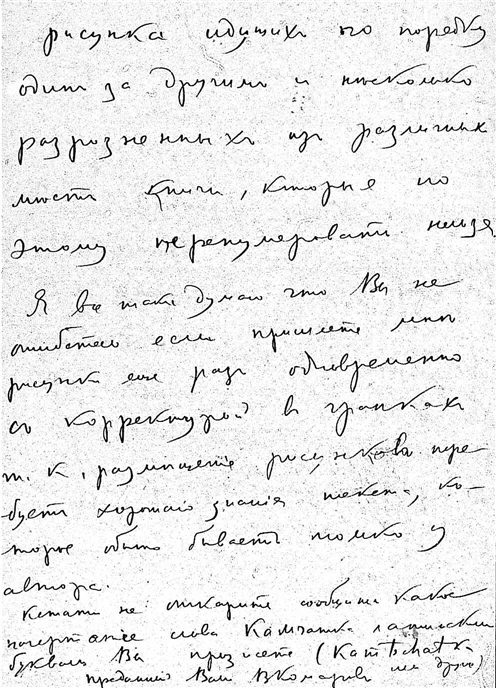 рисунка идущихъ по порядку
один за другимъ и несколько
разрозненныхъ изъ различных
местъ книги, которые по
этому перенумеровать нельзя
Я все таки думаю что Вы не
ошибетесь если пришлете мне
рисунки еще разъ одновременно
съ корректурой в гранкахъ
т. к. размещение рисунковъ тре-
буетъ хорошаго знанія текста, ко-
торое обычно бываетъ только у
автора.
Кстати не откажите сообщить какое
начертание слова Камчатка латинскими
буквами Вы предпочтете (Kamtschatka
преданный Вам ВКомаровъ или